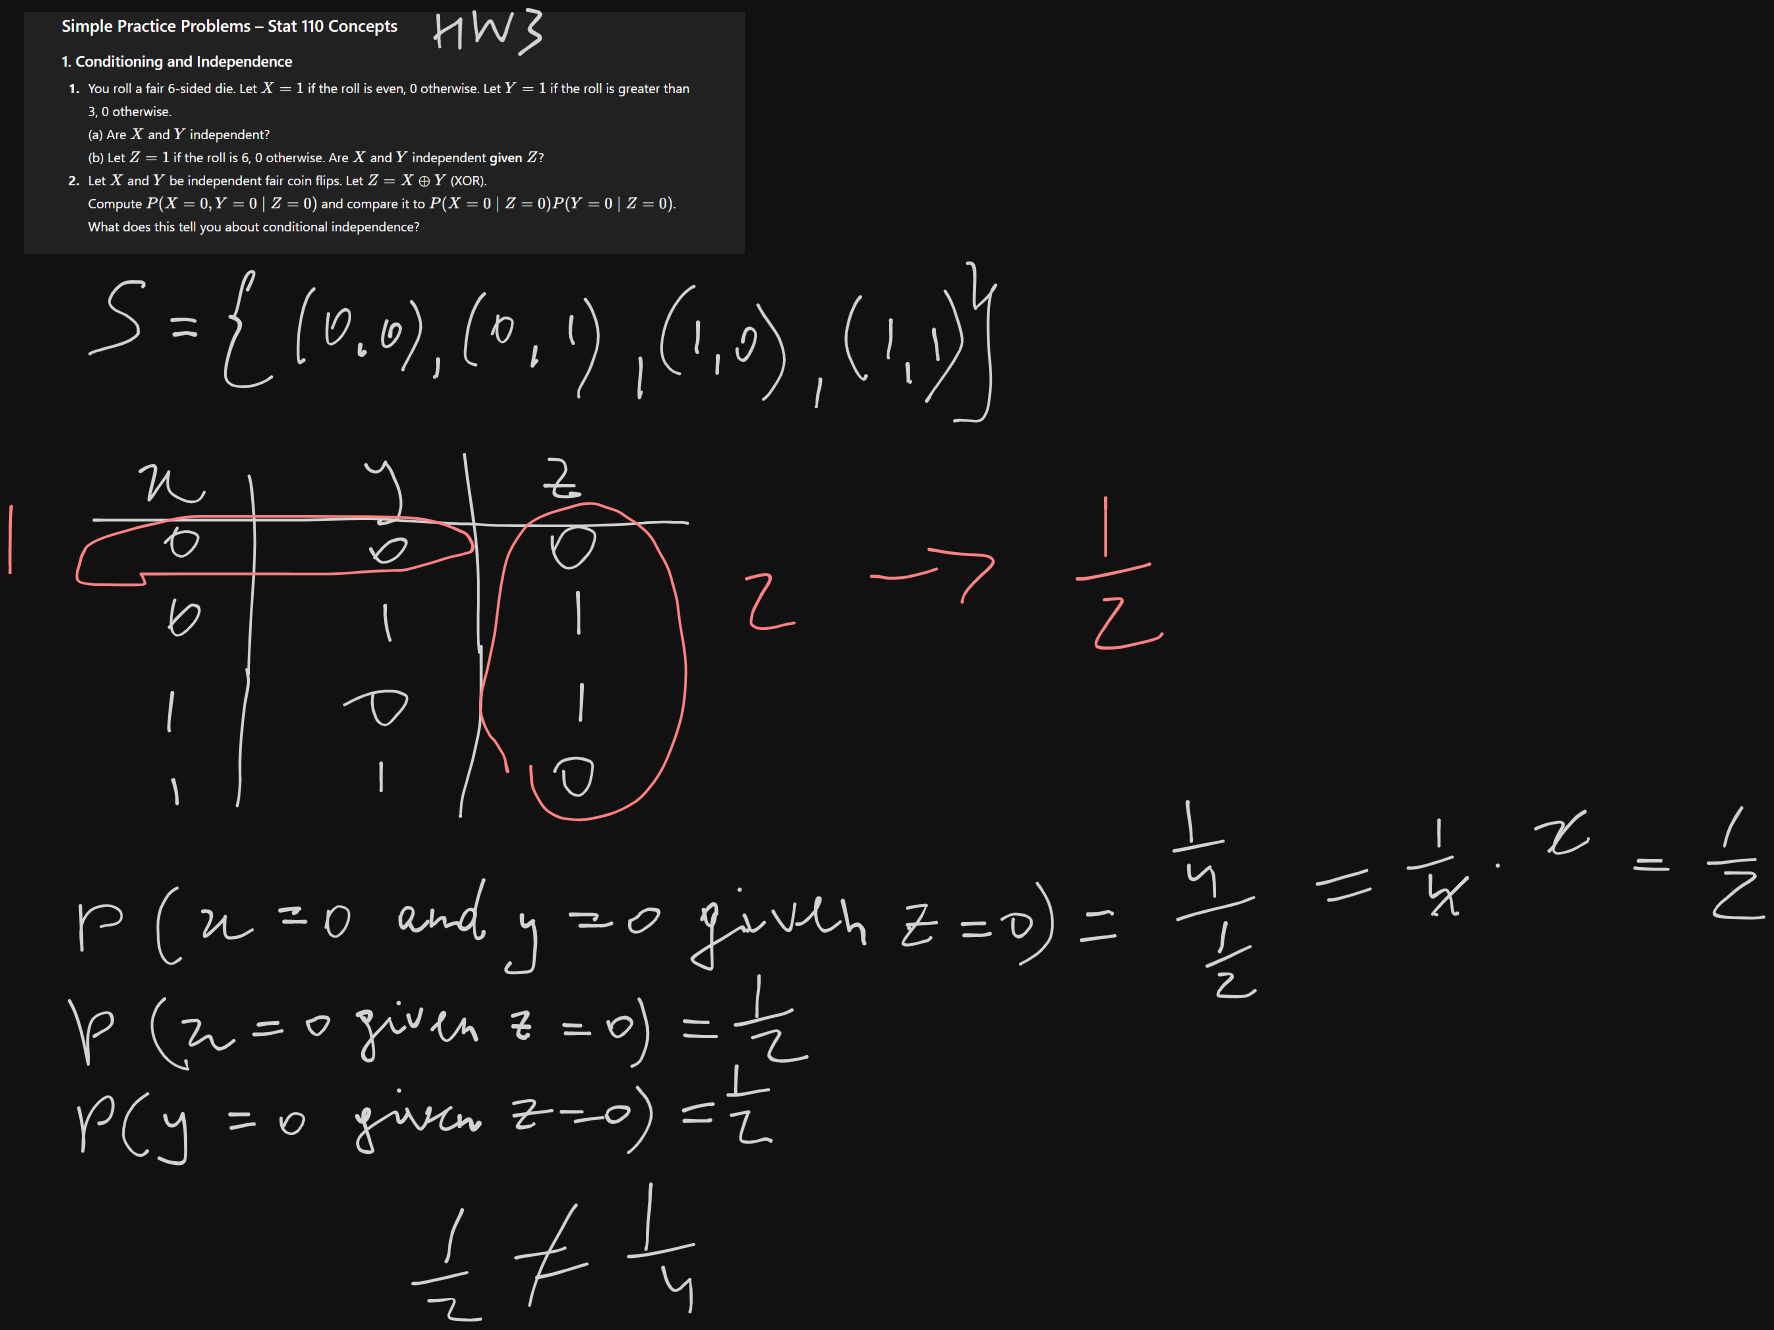 Simple Practice Problems – Stat 110 Concepts HW3
1. Conditioning and Independence
1. You roll a fair 6-sided die. Let X = 1 if the roll is even, 0 otherwise. Let Y = 1 if the roll is greater than
3, 0 otherwise.
(a) Are X and Y independent?
(b) Let Z = 1 if the roll is 6, 0 otherwise. Are X and Y independent given Z?
2. Let X and Y be independent fair coin flips. Let Z = X ⊕ Y (XOR).
Compute P(X = 0, Y = 0 | Z = 0) and compare it to P(X = 0 | Z = 0)P(Y = 0 | Z = 0).
What does this tell you about conditional independence?
S = { (0,0), (0,1), (1,0), (1,1) }
x y z
1 0 0 0 2 → 1/2
0 1 1
1 0 1
1 1 0
P(x = 0 and y = 0 given z = 0) = (1/4)/(1/2) = 1/4 · 2 = 1/2
P(x = 0 given z = 0) = 1/2
P(y = 0 given z = 0) = 1/2
1/2 ≠ 1/4